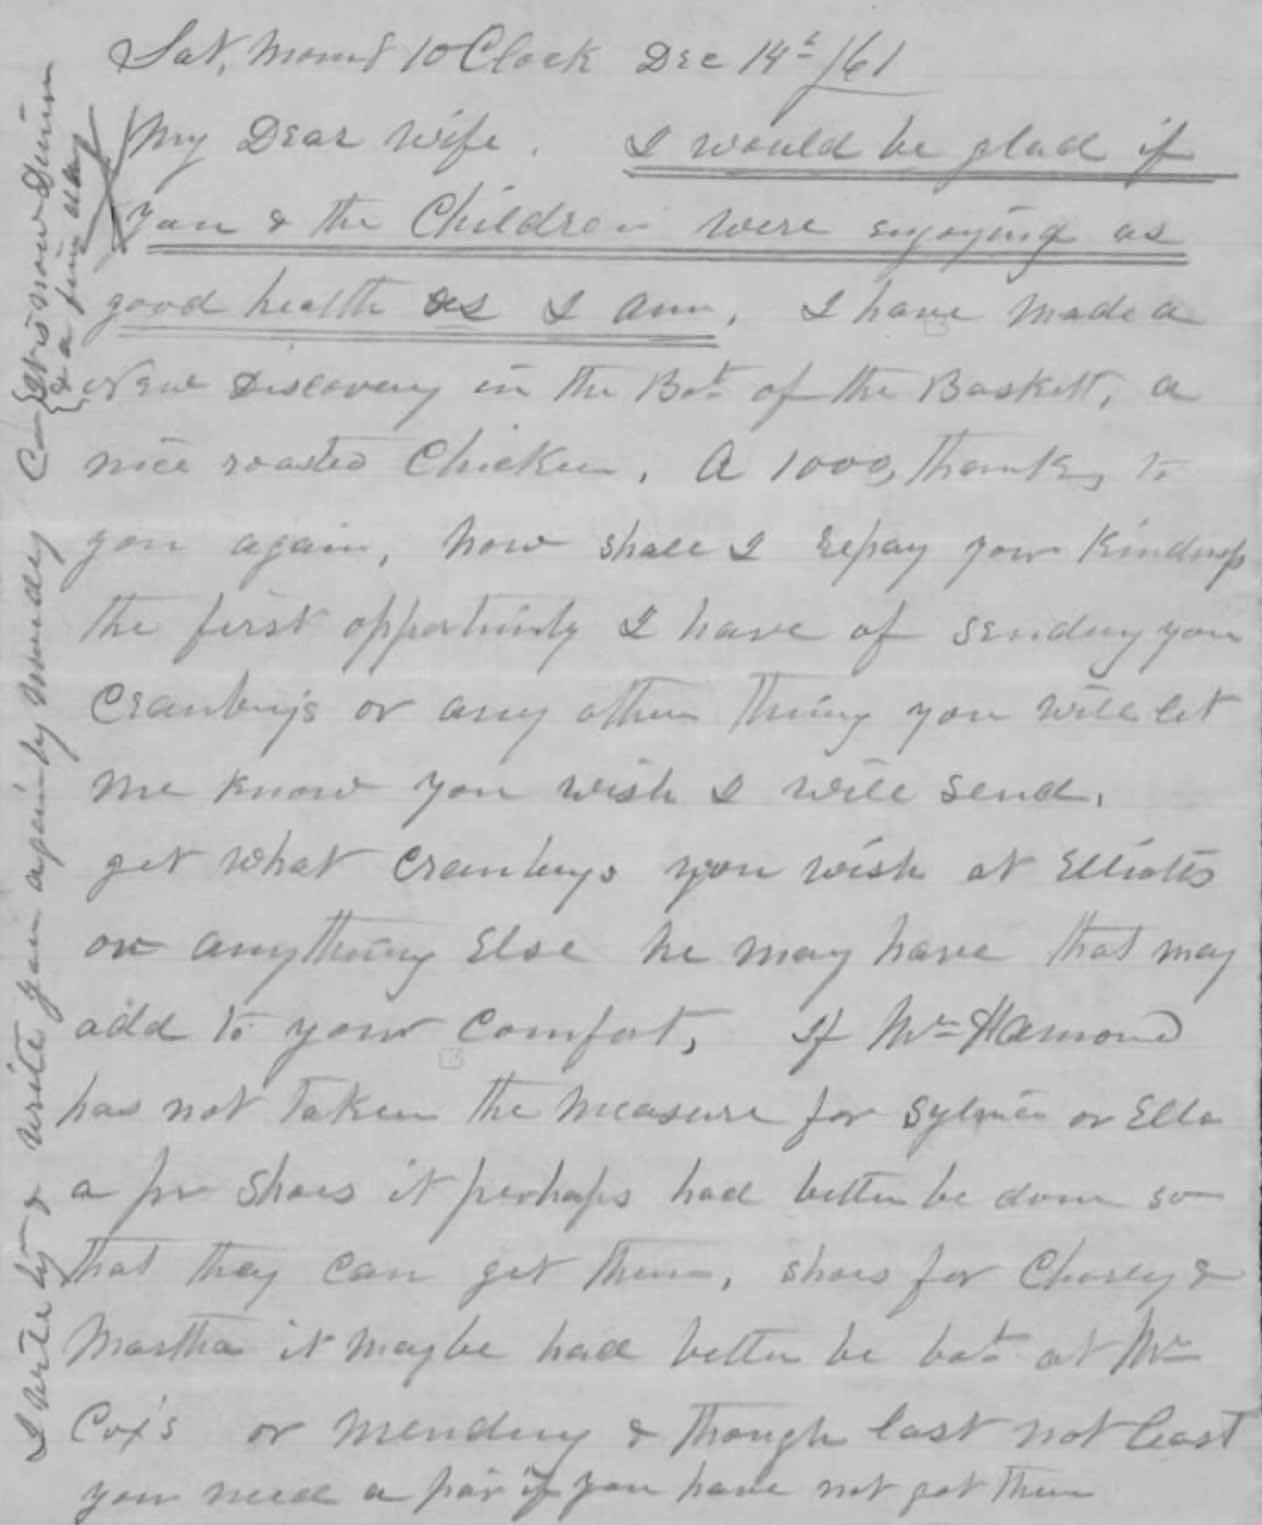 Sat, Morng 10 OClock Dec 14th /61
My Dear Wife. I would be glad if
you & the Children were enjoying as
good health as I am, I have made a
New Discovery in the Bot of the Baskett, a
nice roasted Chicken, A 1000, thanks to
you again, how shall I repay your Kindness
the first opportunity I have of sending you
Cranbuys or any other thing you will let
me know you wish I will send,
get what cranbuys you wish at Elliotts
or anything Else he may have that may
add to your Comfort, If Mr Hamond
has not taken the measure for Sylvia or Ella
a pr Shoes it perhaps had better be done so
that they can get them, shoes for Charley &
Martha it maybe had better be bot at Mr
Cox's or mending & though last not least
you need a pair if you have not got them
I write by & write you again by
it is now
& a fine day